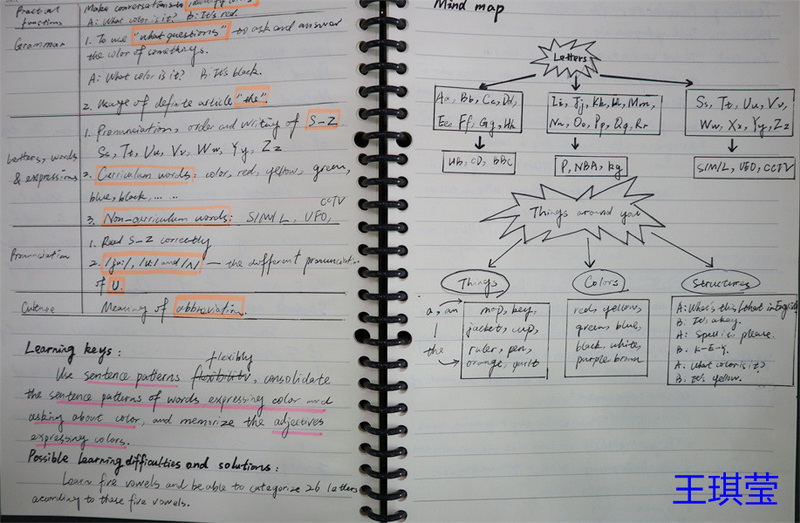 Practical functions
Make conversations to identify
A: What color is it? B: It's red.
Grammar
1. To use "what questions" to ask and answer
the color of somethings.
A: What color is it? B: It's black.
2. Usage of definite article "the".
Letters, words
& expressions
1. Pronunciation, order and writing of S-Z
Ss, Tt, Uu, Vv, Ww, Yy, Zz
2. Curriculum words: color, red, yellow, green,
blue, black, ... ...
CCTV
3. Non-curriculum words: S/M/L, UFO,
Pronunciation
1. Read S-Z correctly
2. /ju:/, /u/ and /ʌ/ — the different pronunciation
of U.
Culture
Meaning of abbreviation.
Learning keys:
flexibly
Use sentence patterns flexibility, consolidate
the sentence patterns of words expressing color and
asking about color, and memrize the adjectives
expressing colors.
Possible Learning difficulties and solutions:
Learn five vowels and be able to categorize 26 letters
according to these five vowels.
Mind map
Letters
Aa, Bb, Cc, Dd,
Ee, Ff, Gg, Hh
Ii, Jj, Kk, Ll, Mm,
Nn, Oo, Pp, Qq, Rr
Ss, Tt, Uu, Vv,
Ww, Xx, Yy, Zz
HB, CD, BBC
P, NBA, kg
S/M/L, UFO, CCTV
Things around you
Things
Colors
Structures
a, an
/
the
map, key,
jacket, cup,
ruler, pen,
orange, quilt
red, yellow,
green, blue,
black, white,
purple brown
A: What's this/that in English
B: It's a key.
A: Spell it, please.
B: K-E-Y.
A: What color is it?
B: It's yellow.
王琪莹